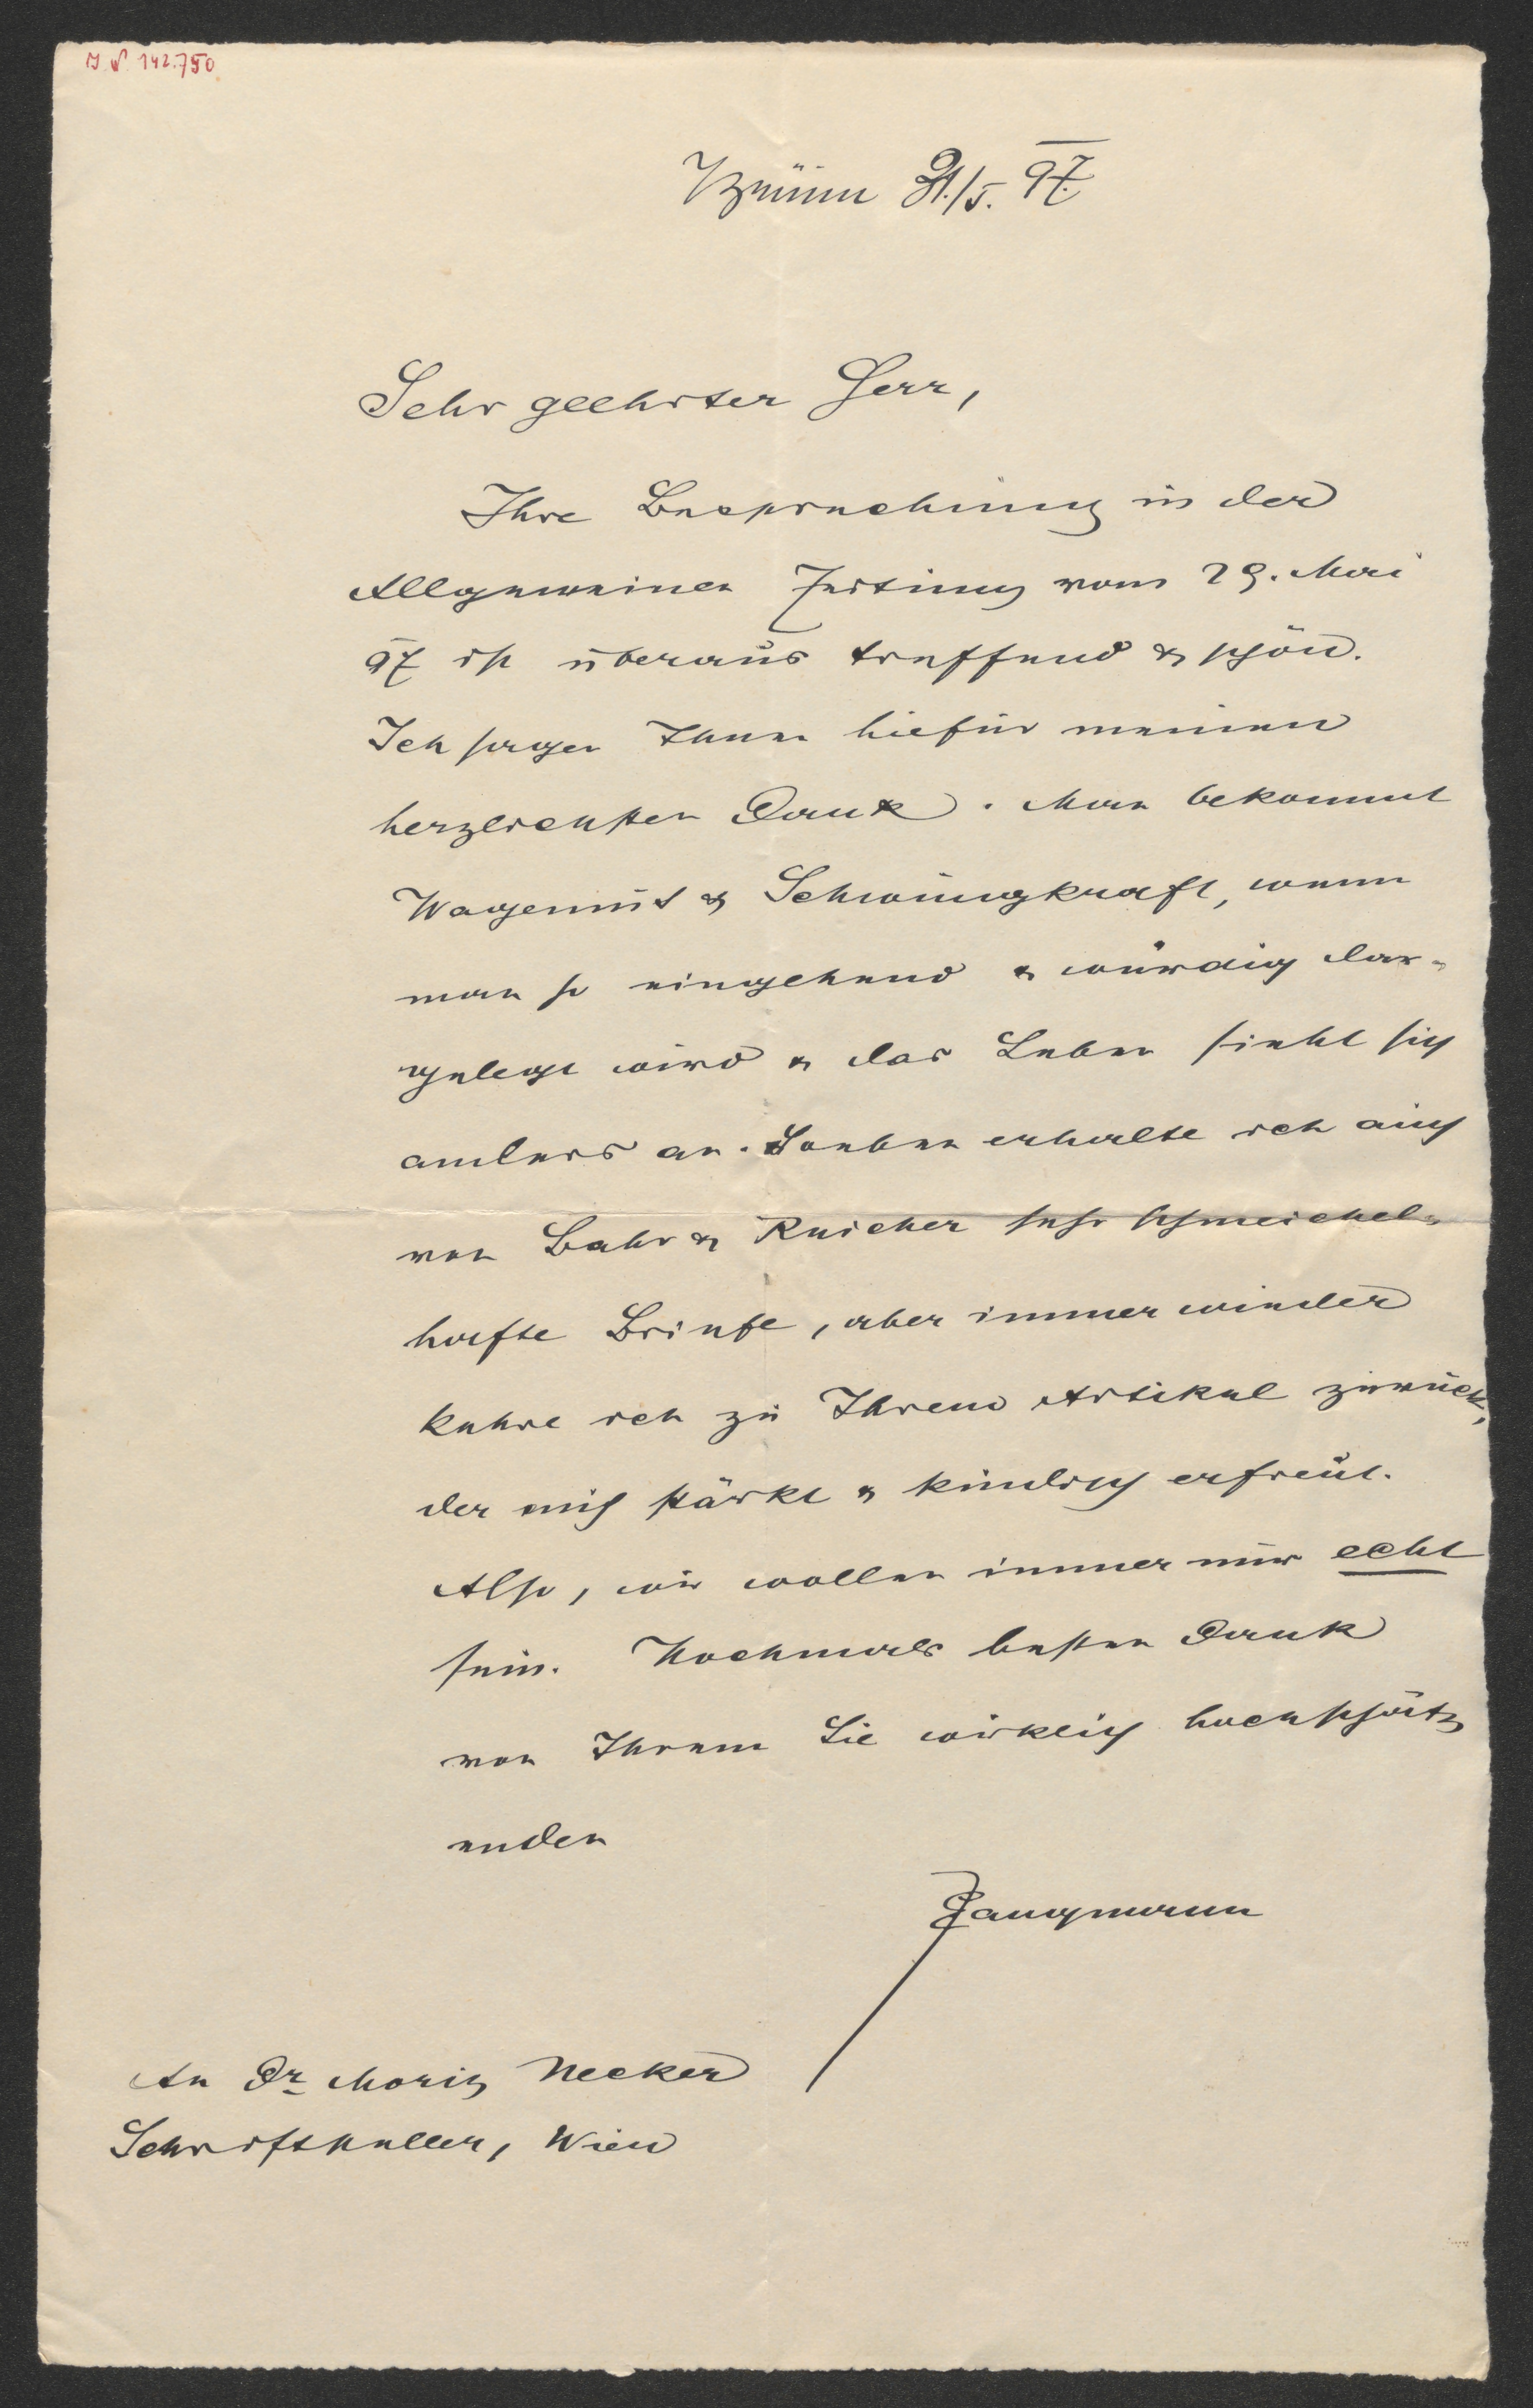 I. N. 142.750
Brünn 31./5. 97.
Sehr geehrter Herr,
Ihre Besprechung in der
Allgemeinen Zeitung vom 29. Mai
97 ist überaus treffend & schön.
Ich sage Ihnen hiefür meinen
herzlichsten Dank. Man bekommt
Wagemut & Schwungkraft, wenn
man so eingehend & würdig dar-
gelegt wird & das Leben sieht sich
anders an. Soeben erhalte ich auch
von Bahr & Reicher sehr schmeichel-
hafte Briefe, aber immer wieder
kehre ich zu Ihrem Artikel zurück,
der mich stärkt & kindisch erfreut.
Also, wir wollen immer nur echt
sein. Nochmals besten Dank
von Ihrem Sie wirklich hochschätz
enden
Langmann
An Dr. Moriz Necker
Schriftsteller, Wien